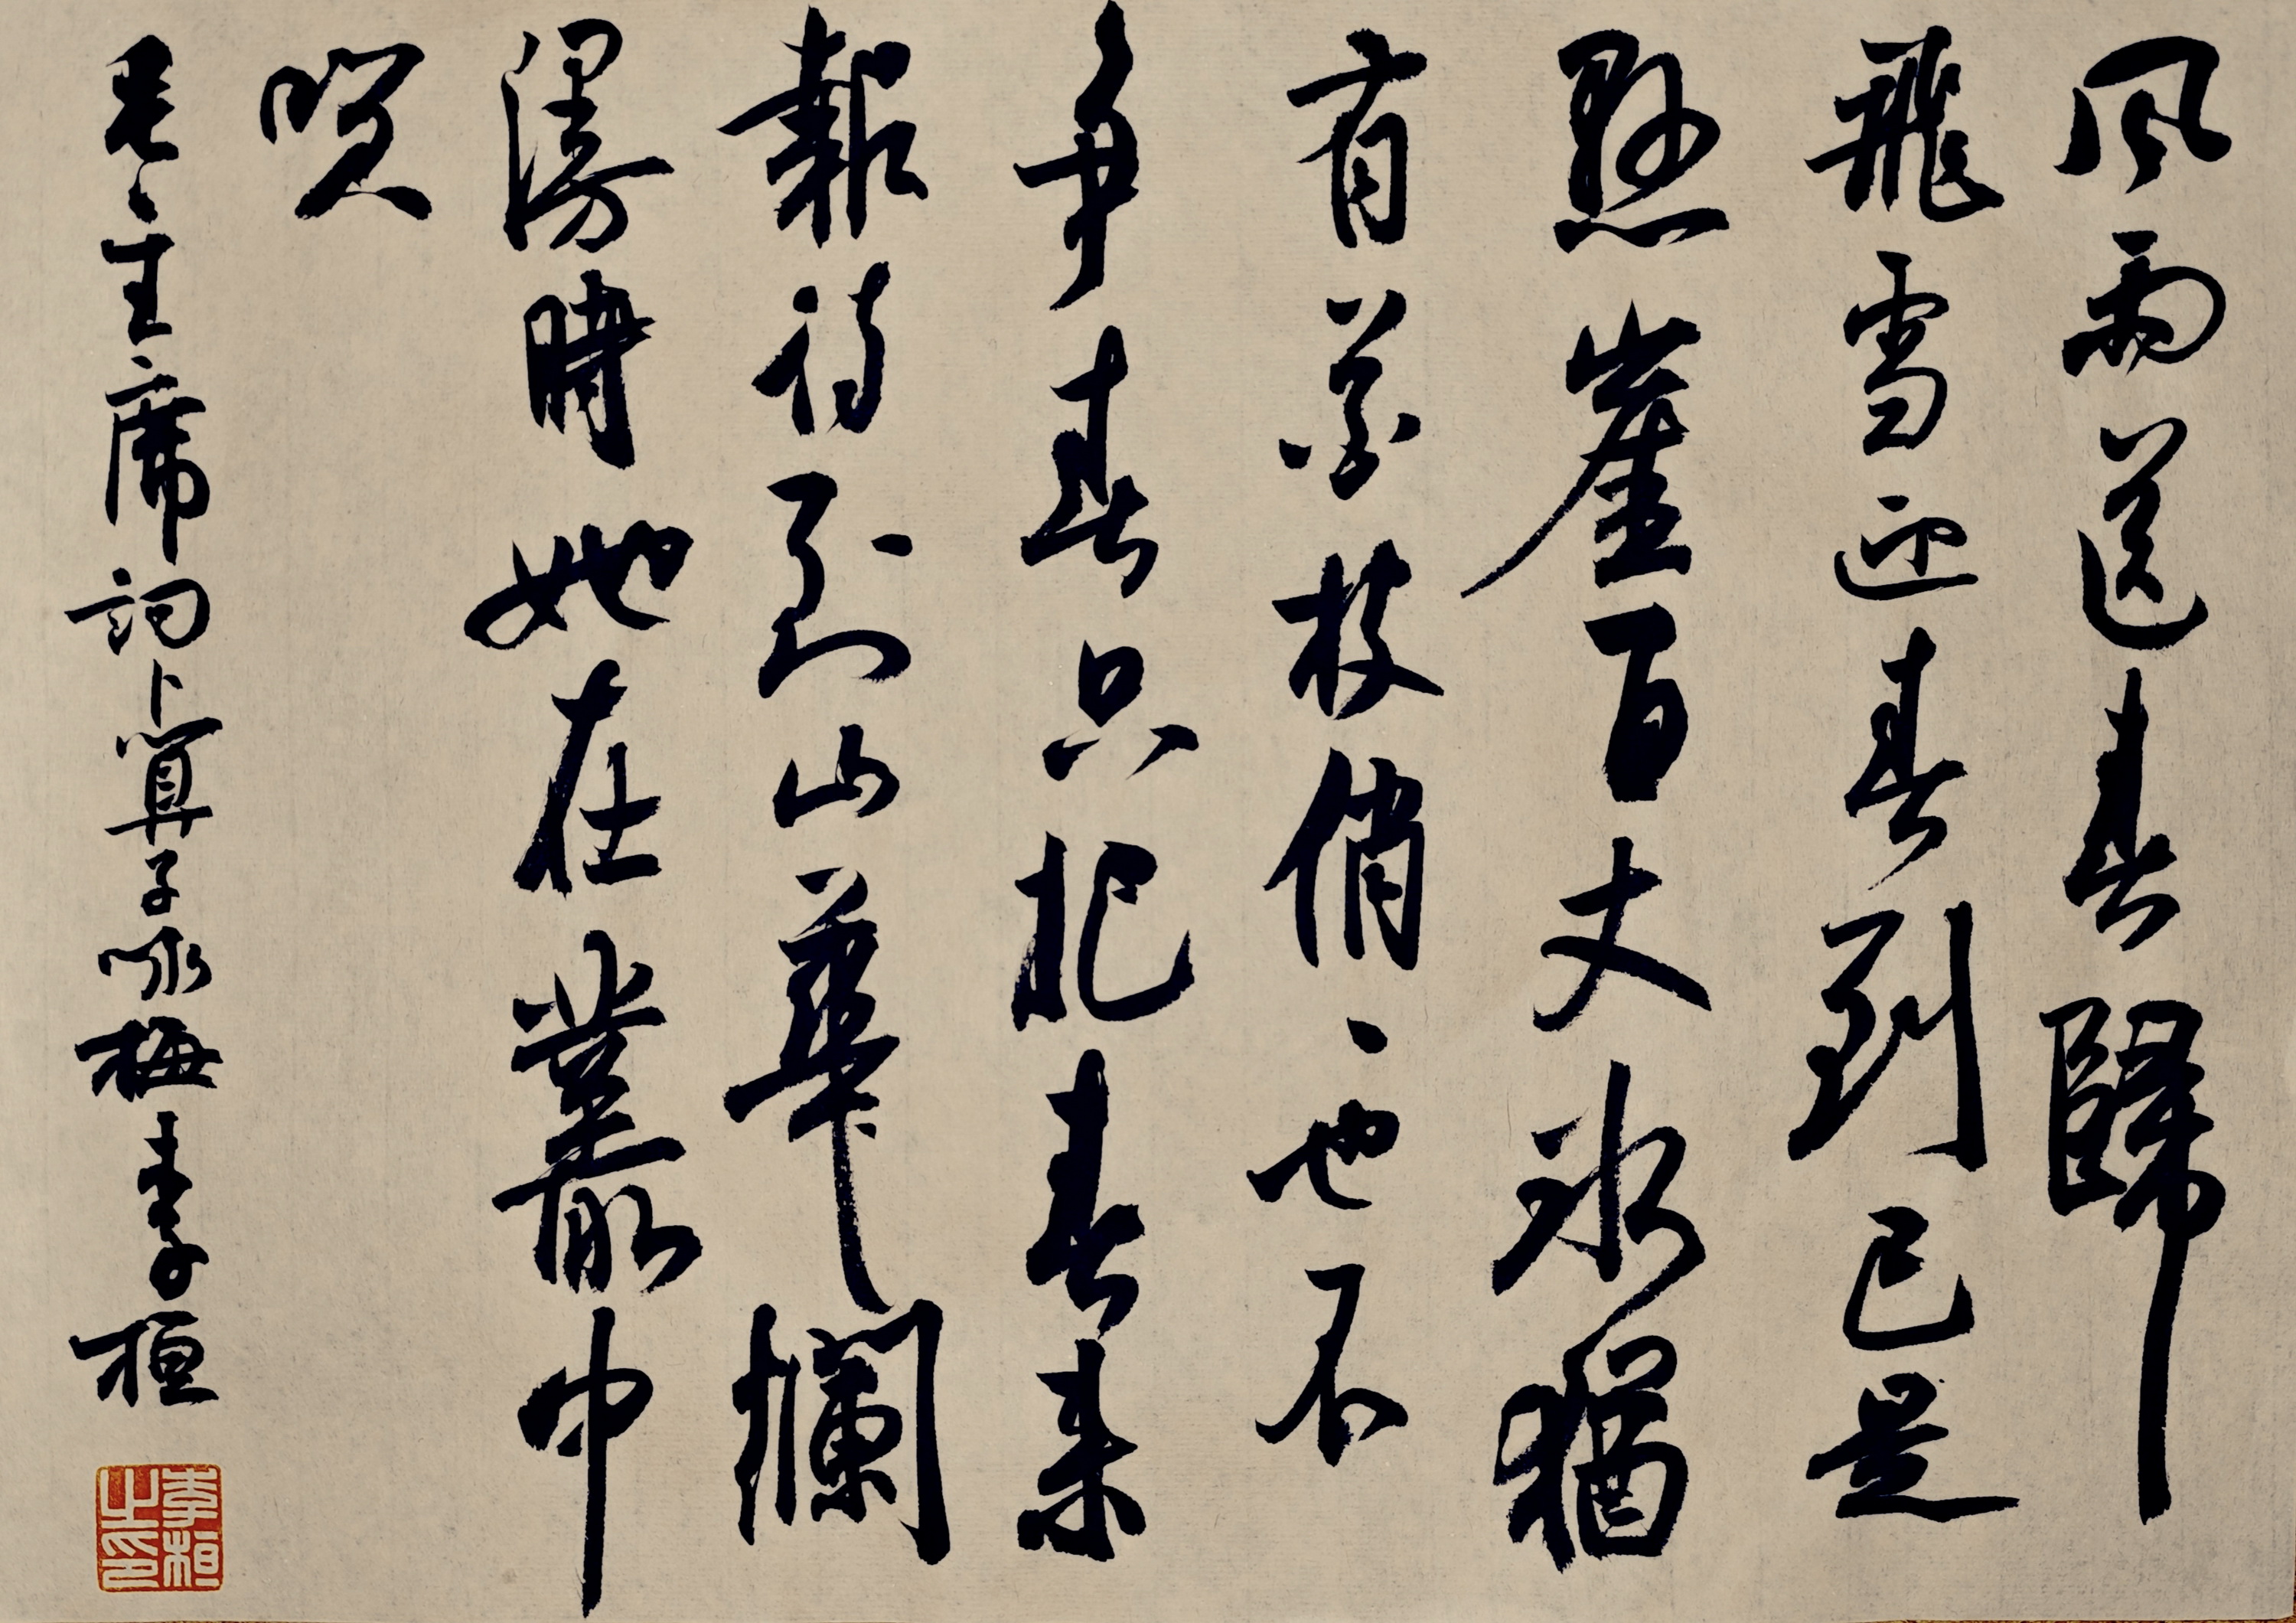 風雨送春歸
飛雪迎春到已是
懸崖百丈冰猶
有花枝俏々也不
争春只把春來
報待到山華爛
漫時她在叢中
咲
毛主席詞卜算子咏梅李桓
李桓之印